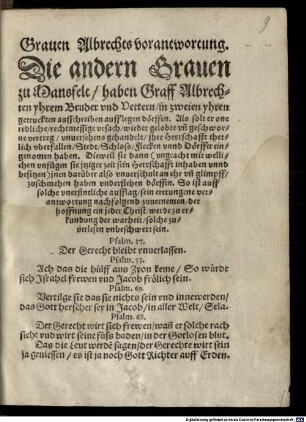 9
Grauen Albrechts vorantwortung.
Die andern Grauen
zu Mansfelt / haben Graff Albrech-
ten yhrem Bruder vnd Vettern / in zweien yhren
getruckten ausschreiben aufflegen dörffen. Als solt er one
redliche / rechtmessige vrsach / wieder gelobte vñ geschwor-
ne vertreg / vnuersehens gehandelt / jhre Herrschafft thet-
lich vberfallen / Stedt / Schloss / Flecken vnnd Dörffer ein-
genomen haben. Dieweil sie dann (vngeacht mit welli-
chen vnfügen sie jniger zeit sein Herrschafft inhaben vnnd
besitzen) jnen darüber also vnuerschult an ehr vñ glimpff /
zuschmehen haben vnderstehen dörffen. So ist auff
solche vnerfintliche aufflag / sein errungene ver-
antwortung nachfolgend zuuernemen. der
hoffnung ein jeder Christ. werde zu er-
kundung der warheit / solche zu-
uerlesen vnbeschwert sein.
Psalm. 37.
Der Gerecht bleibt vnuerlassen.
Psalm. 53.
Ach das die hülff aus Zyon keme / So würde
sich Israhel frewen vnd Jacob frölich sein.
Psalm. 69.
Vertilge sie das sie nichts sein vnd innewerden /
das Gott herscher sey in Jacob / in aller Welt / Sela.
Psalm. 68.
Der Gerecht wirt sich frewen / wañ er solche rach
sicht vnd wirt seine füss baden / in der Gotlosen blut.
Das die Leut werdē sagen / der Gerechte wirt sein
ja geniessen / es ist ja noch Gott Richter auff Erden.